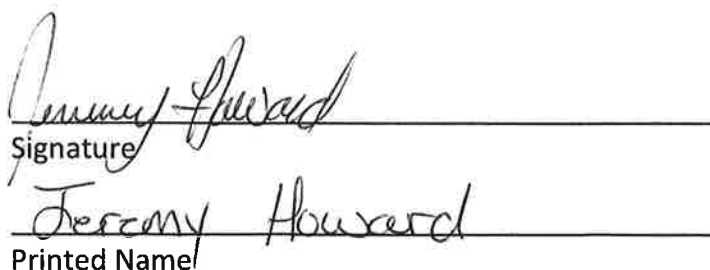 Jeremy Howard
Signature
Jeremy Howard
Printed Name